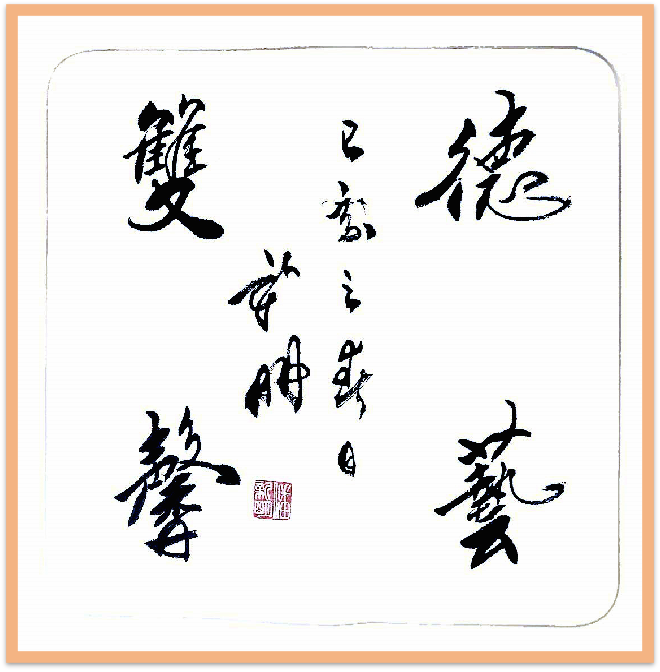 德藝
己亥之春日
雙馨